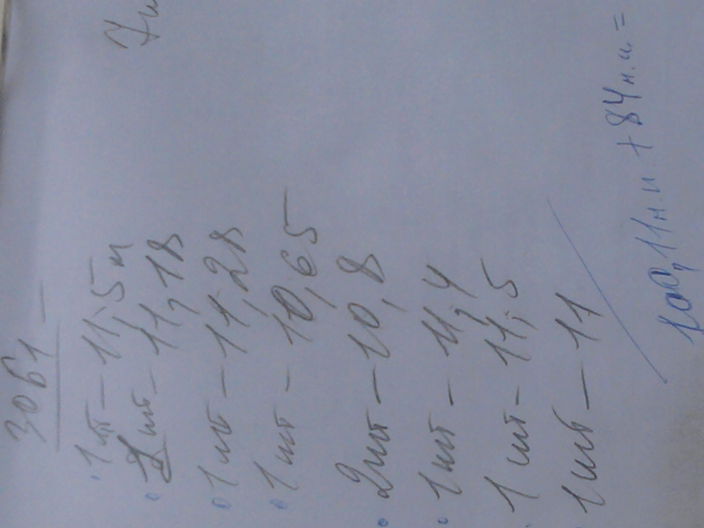 30Б1 —
1шт — 11,5 м
1шт — 11,18
1шт — 11,28
1шт — 10,65
2шт — 10,8
1шт — 11,4
1шт — 11,5
1шт — 11
100,11 м.п + 84 м.п. =